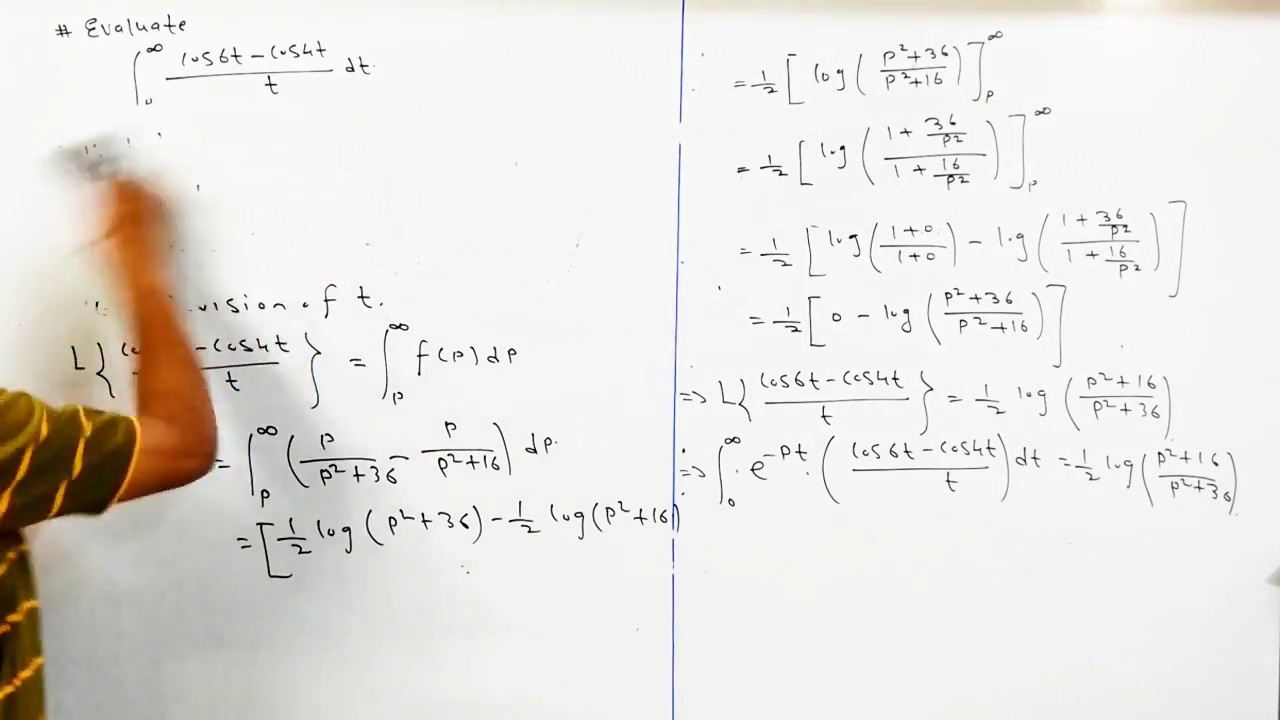 # Evaluate
∫₀^∞ (cos6t − cos4t)/t dt.
of t.
L{ − cos4t / t } = ∫ₚ^∞ f(p) dp
= ∫ₚ^∞ ( p/(p²+36) − p/(p²+16) ) dp.
= [ 1/2 log(p²+36) − 1/2 log(p²+16)
= 1/2 [ log( (p²+36)/(p²+16) ) ]ₚ^∞
= 1/2 [ log( (1 + 36/p²)/(1 + 16/p²) ) ]ₚ^∞
= 1/2 [ log( (1+0)/(1+0) ) − log( (1 + 36/p²)/(1 + 16/p²) ) ]
= 1/2 [ 0 − log( (p²+36)/(p²+16) ) ]
=> L{ (cos6t − cos4t)/t } = 1/2 log( (p²+16)/(p²+36) )
=> ∫₀^∞ e^(−pt) . ( (cos6t − cos4t)/t ) dt = 1/2 log( (p²+16)/(p²+36) )